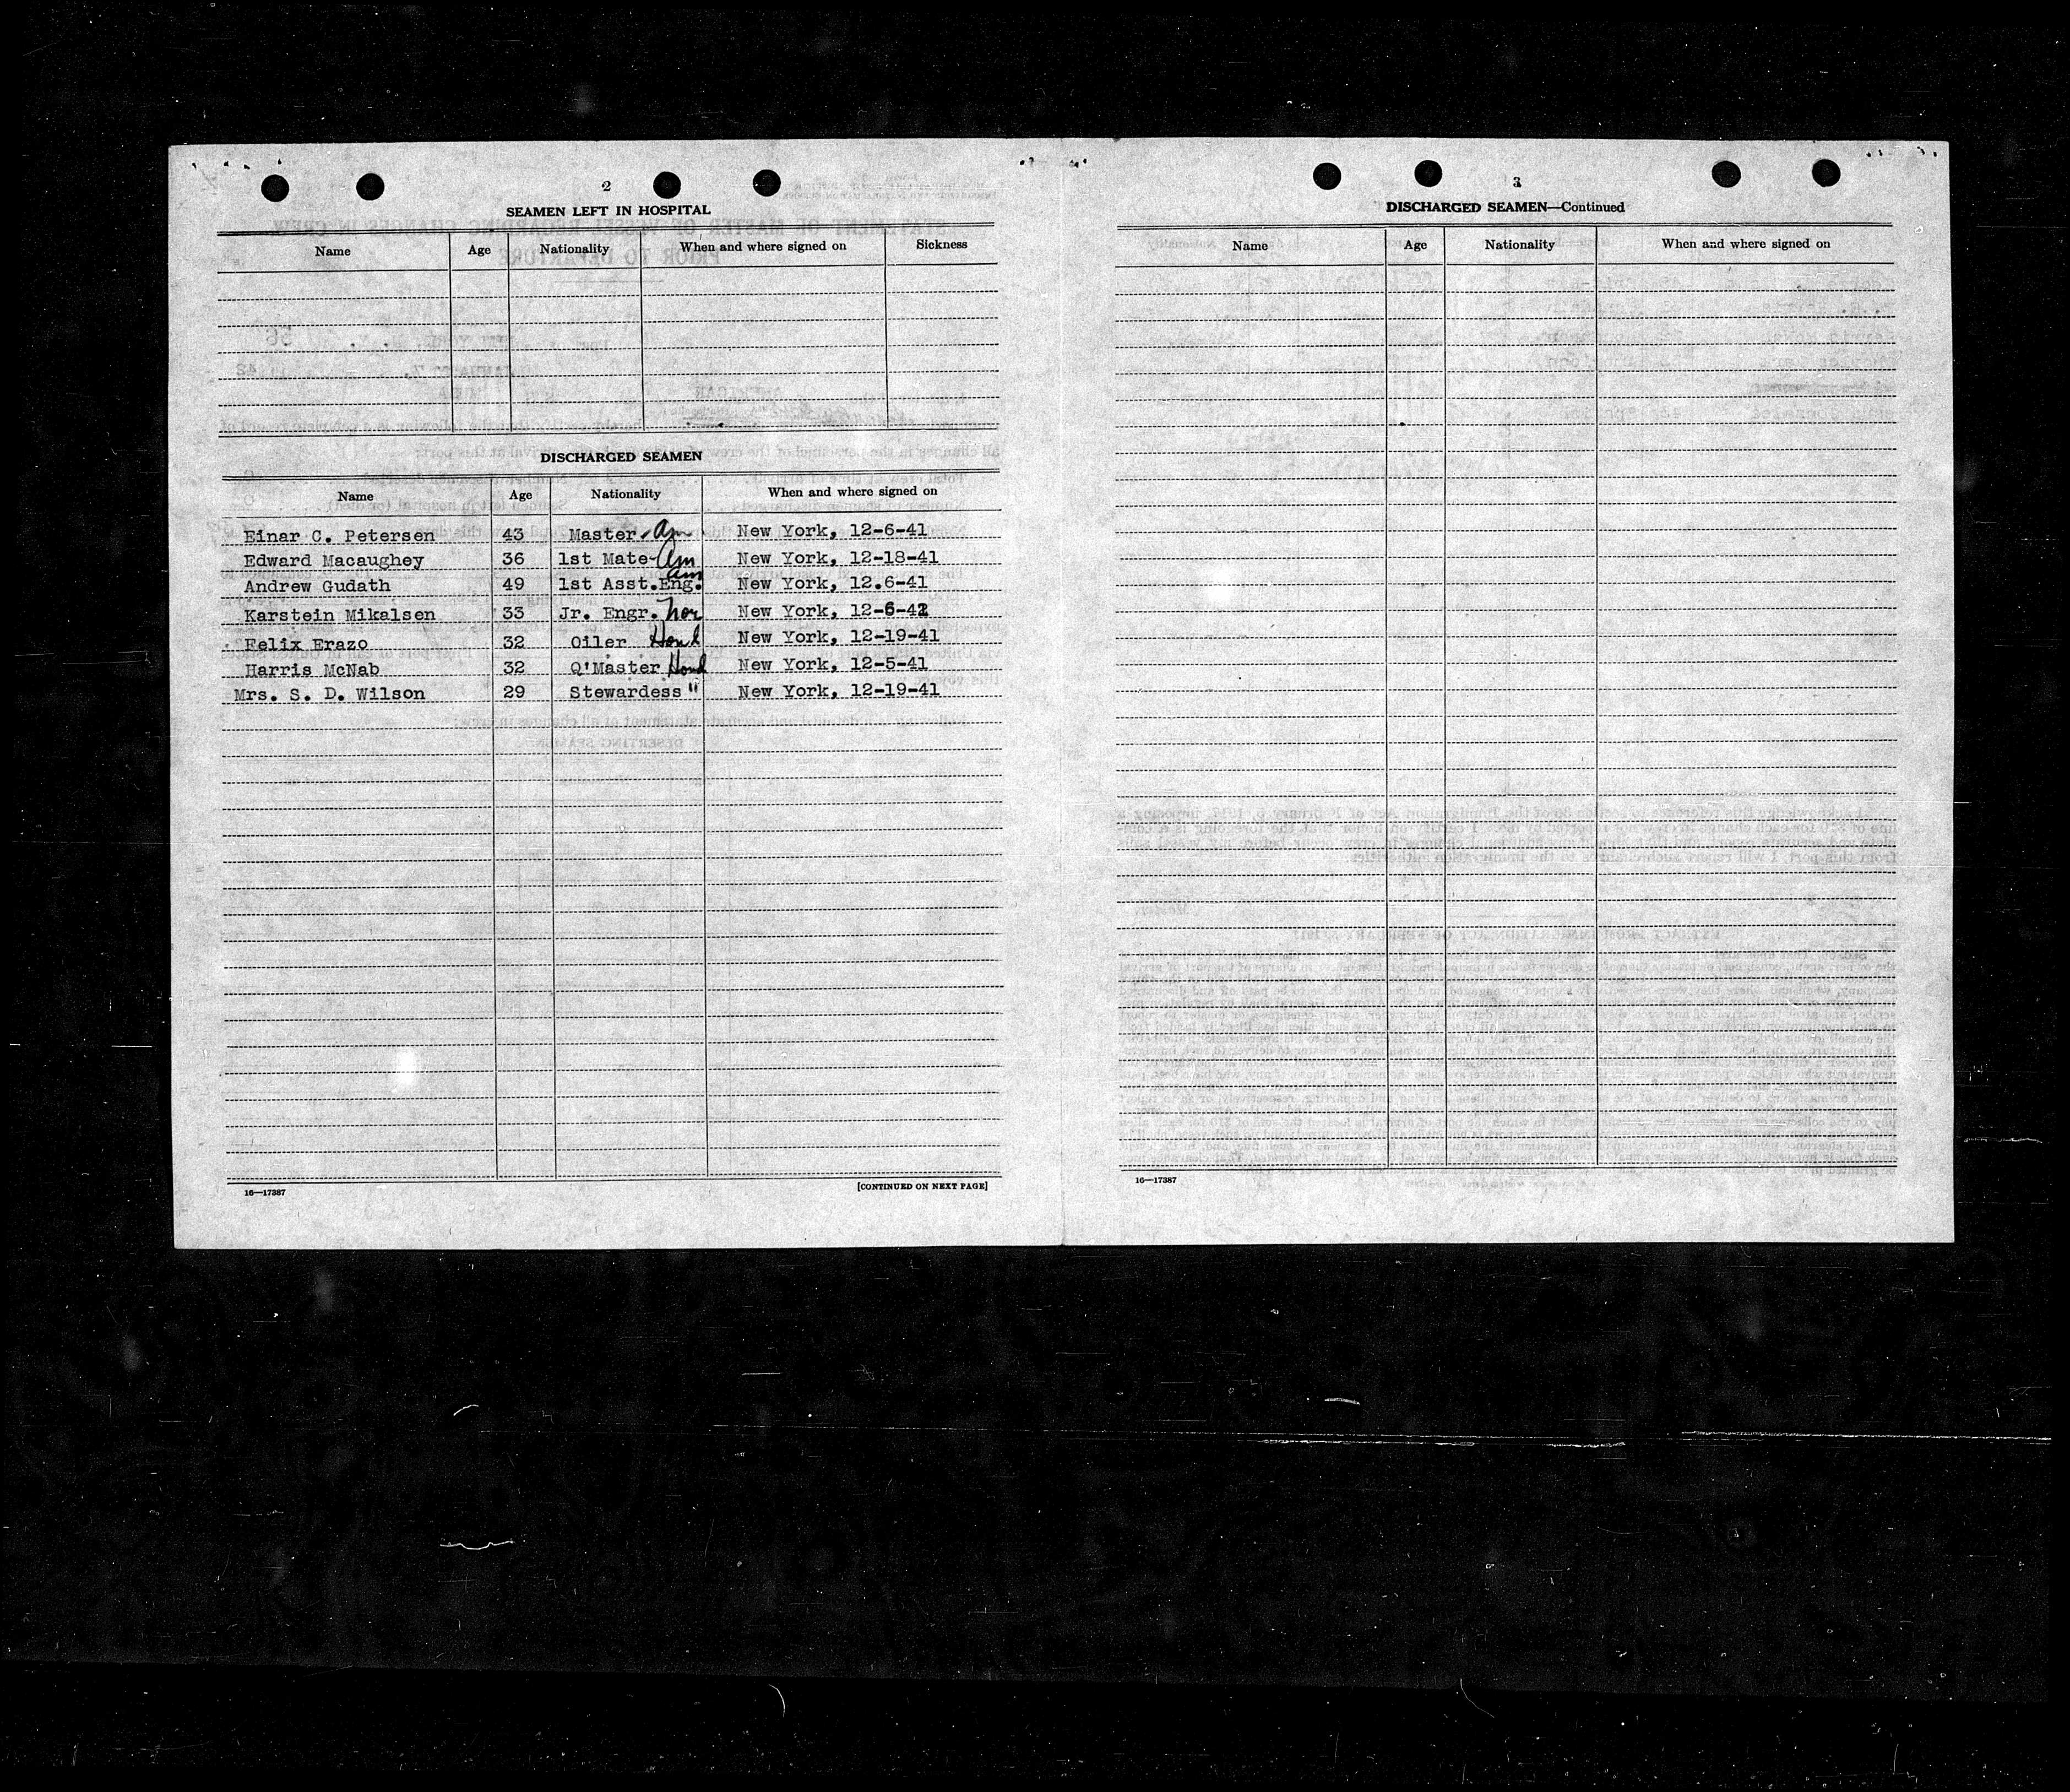 2
SEAMEN LEFT IN HOSPITAL
Name Age Nationality When and where signed on Sickness
DISCHARGED SEAMEN
Name Age Nationality When and where signed on
Einar C. Petersen 43 Master Am New York, 12-6-41
Edward Macaughey 36 1st Mate Am New York, 12-18-41
Andrew Gudath 49 1st Asst.Eng. Am New York, 12.6-41
Karstein Mikalsen 33 Jr. Engr. Nor New York, 12-6-41
Felix Erazo 32 Oiler Hond New York, 12-19-41
Harris McNab 32 Q'Master Hond New York, 12-5-41
Mrs. S. D. Wilson 29 Stewardess " New York, 12-19-41
16—17387
[CONTINUED ON NEXT PAGE]
3
DISCHARGED SEAMEN—Continued
Name Age Nationality When and where signed on
16—17387